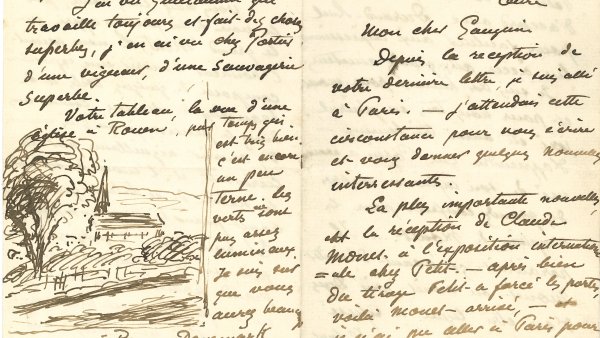 J'ai vu Guillaumin qui
travaille toujours et fait des choses
superbes, j'en ai vu chez Portier
d'une vigueur, d'une sauvagerie
superbe.
Votre tableau, la vue d'une
église à Rouen, par temps gris
est très bien.
c'est encore
un peu
terne. les
verts sont
pas assez
lumineux.
Je suis sûr
que vous
aurez beaucoup
Danemark
Mon cher Gauguin
Depuis la réception de
votre dernière lettre, je suis allé
à Paris. — J'attendais cette
circonstance pour vous écrire
et vous donner quelques nouvelles
interressantes.
La plus importante nouvelle,
est la réception de Claude
Monet à l'exposition internation
=ale chez Petit. — après bien
du tirage Petit a forcé les portes,
voilà Monet arrivé, — et
allés à Paris pour